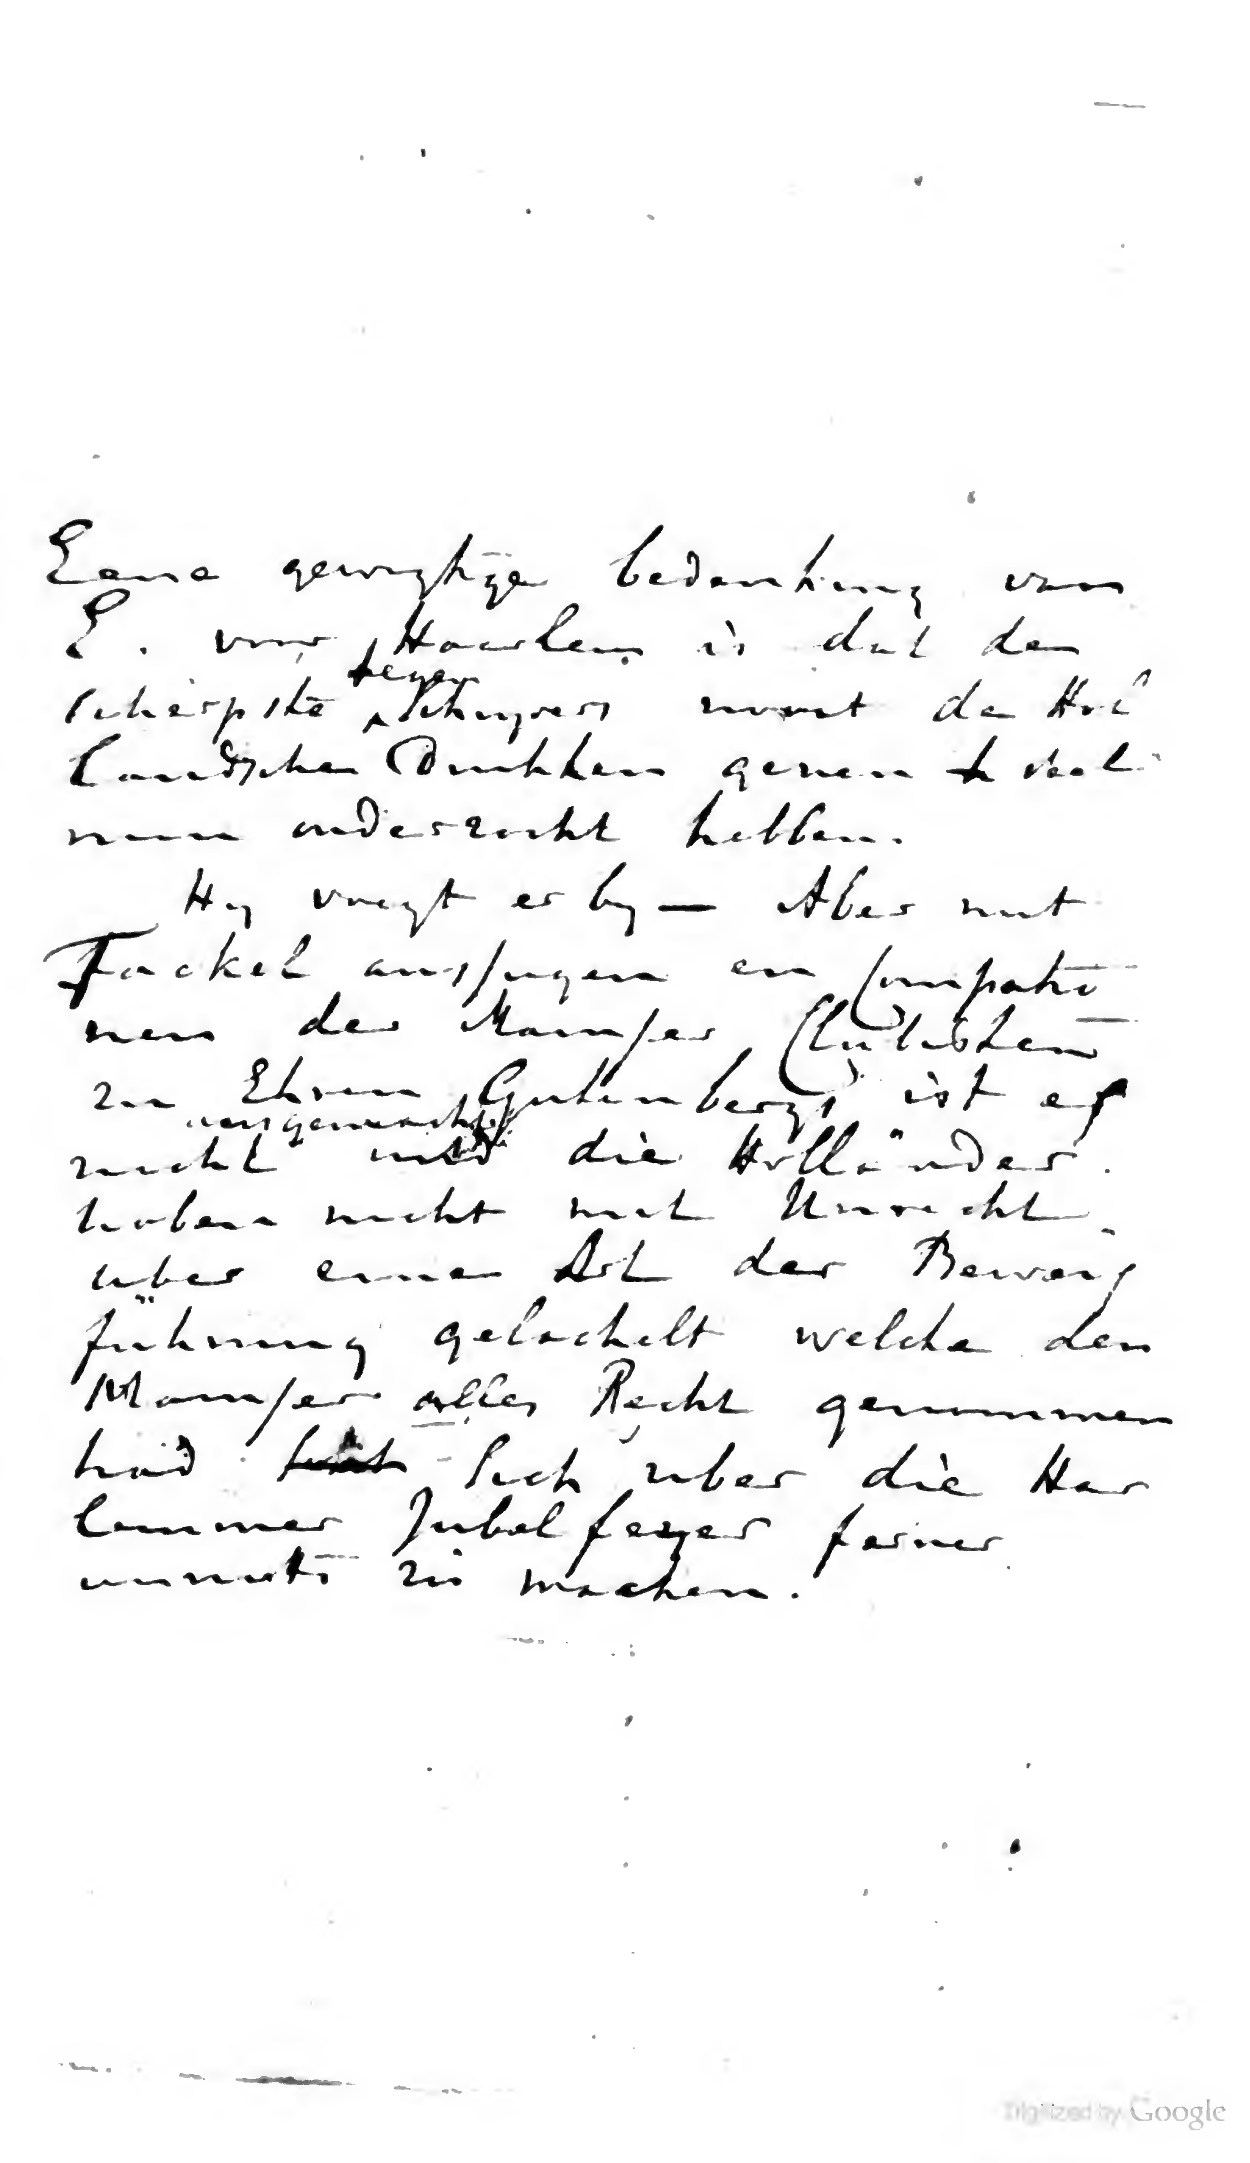 Eene gewigtige bedenking van
E. voor Haarlem is dat de
scherpste tegen schryvers nooit de Hol
landsche Drukken gezien h veel
min onderzocht hebben.
Hy voegt er by — Aber mit
Fackel aufzugen en Compatrio
nen der Mainzer Clubisten
zu Ehren Gutenbergs ist es
nicht ausgemacht und die Holländer
haben nicht mit Unrecht
uber eine Art der Beweis
führung gelachelt welche den
Mainzer alles Recht genommen
had sich uber die Har
lemmer Jubelfeyer ferner
zu machen.
Digitized by Google